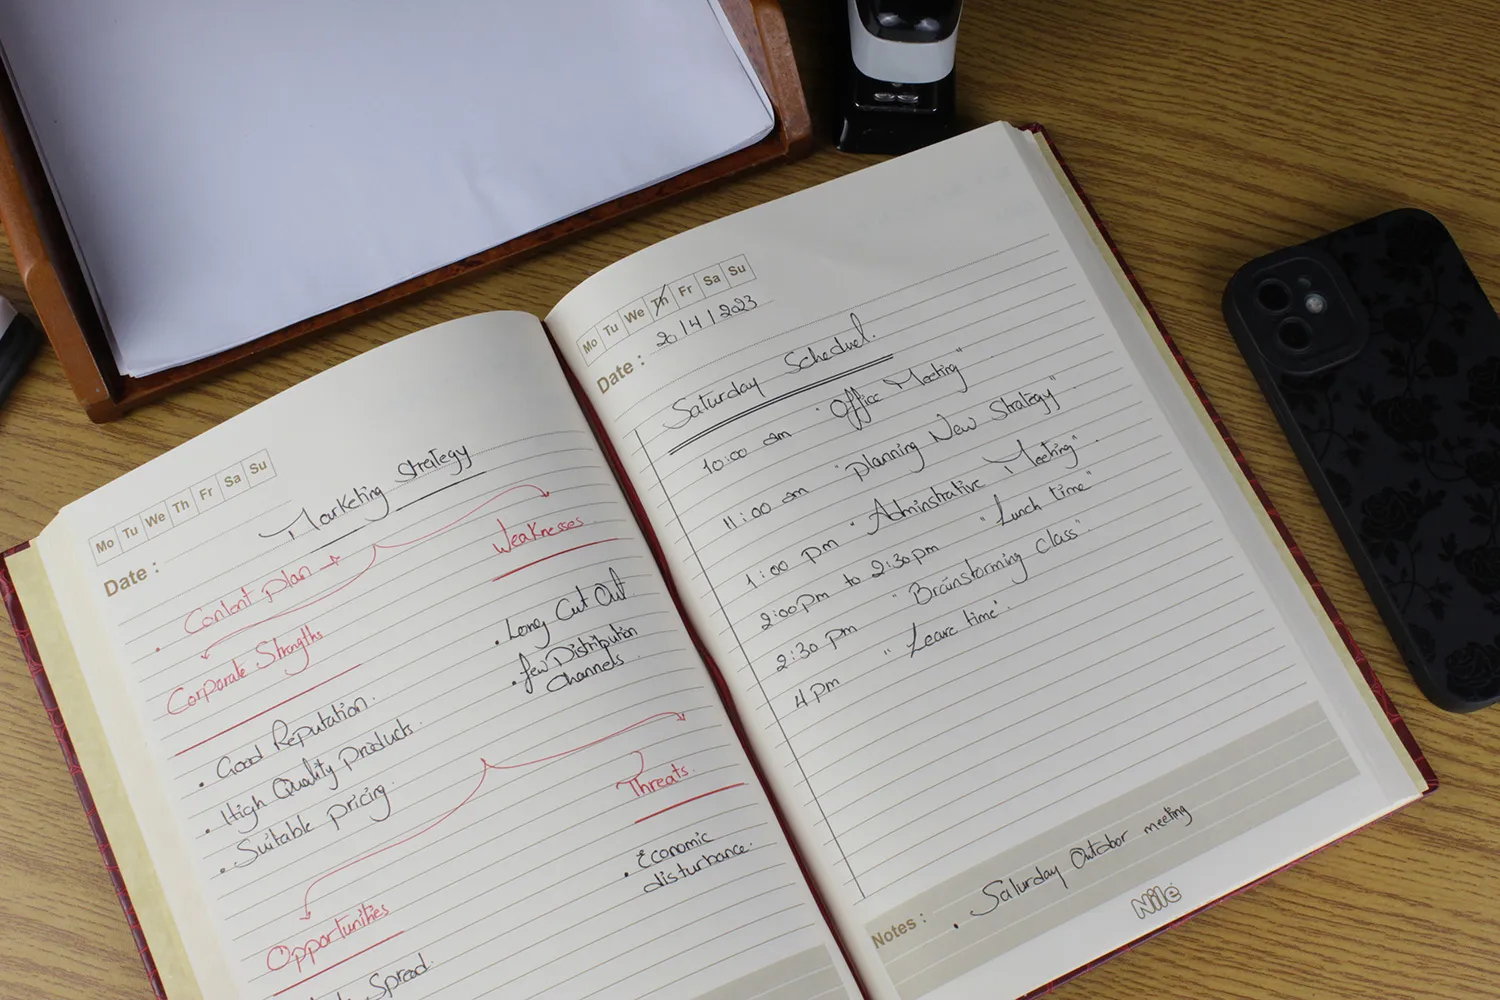 Mo Tu We Th Fr Sa Su
Date :
Marketing Strategy
Content plan →
Weaknesses
Corporate Strengths
• Long Cut Out
• few Distribution
Channels
• Good Reputation.
• High Quality products.
• Suitable pricing
Threats.
• Economic
disturbance.
Opportunities
Spread.
Mo Tu We Th Fr Sa Su
Date : 20/4/2023
Saturday Scheduel.
10:00 am "Office Meeting"
11:00 am "planning New Strategy"
1:00 pm "Adminstrative Meeting".
2:00pm to 2:30pm "Lunch time"
2:30 pm "Brainstorming Class"
4 pm "Leave time".
Notes : • Saturday Outdoor meeting
Nile